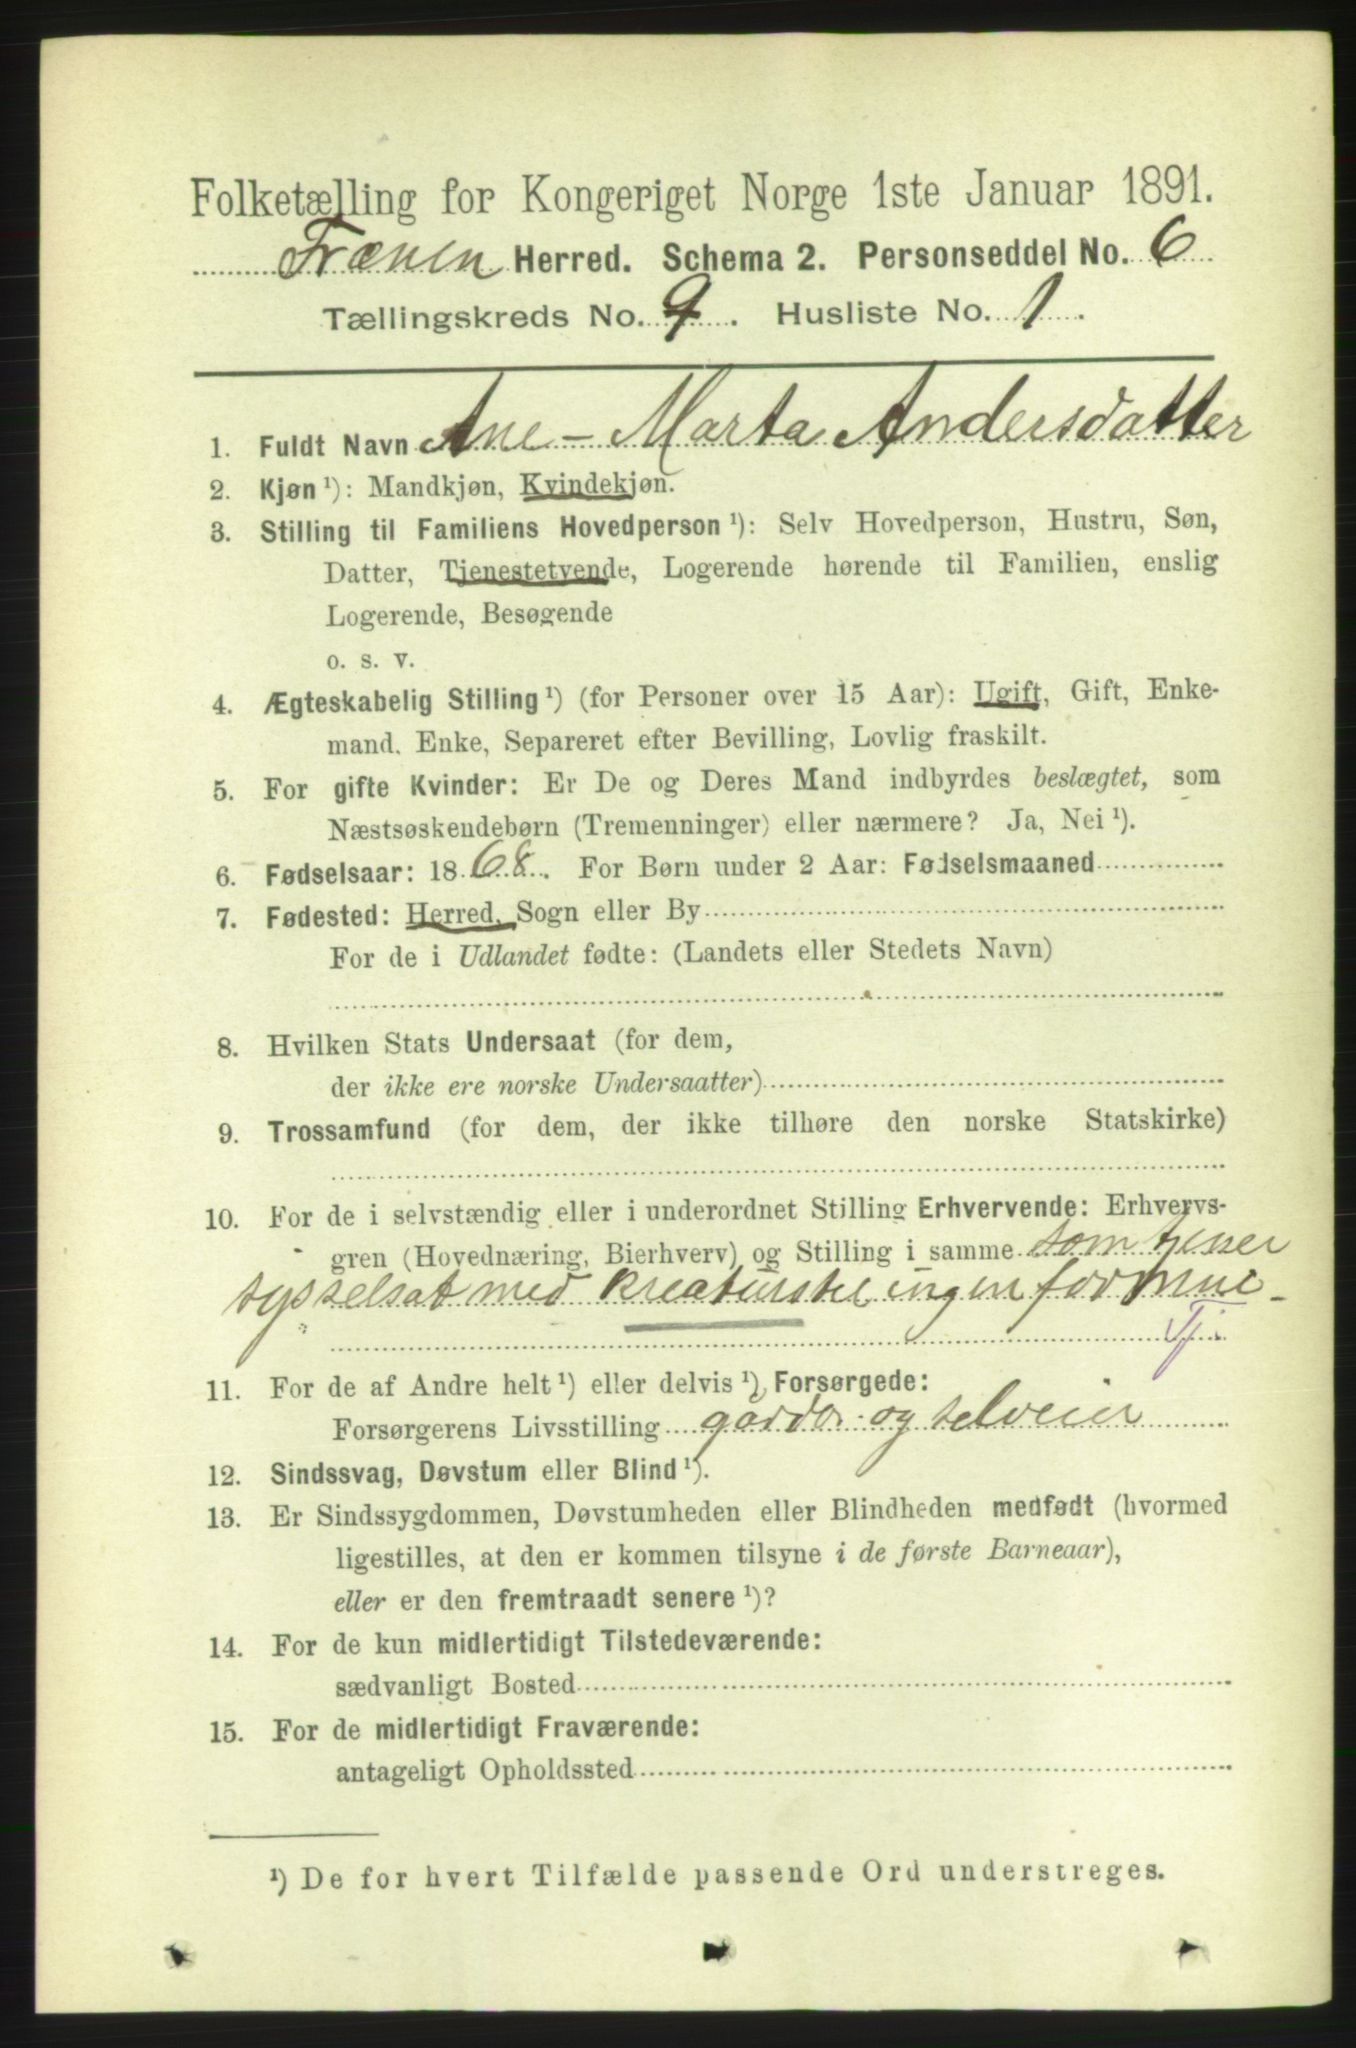 Folketælling for Kongeriget Norge 1ste Januar 1891.
Frænen Herred. Schema 2. Personseddel No. 6
Tællingskreds No. 9. Husliste No. 1.
1. Fuldt Navn Ane-Marta Andersdatter
2. Kjøn ¹): Mandkjøn, Kvindekjøn.
3. Stilling til Familiens Hovedperson ¹): Selv Hovedperson, Hustru, Søn,
Datter, Tjenestetyende, Logerende hørende til Familien, enslig
Logerende, Besøgende
o. s. v.
4. Ægteskabelig Stilling ¹) (for Personer over 15 Aar): Ugift, Gift, Enke-
mand, Enke, Separeret efter Bevilling, Lovlig fraskilt.
5. For gifte Kvinder: Er De og Deres Mand indbyrdes beslægtet, som
Næstsøskendebørn (Tremenninger) eller nærmere? Ja, Nei ¹).
6. Fødselsaar: 1868. For Børn under 2 Aar: Fødselsmaaned
7. Fødested: Herred, Sogn eller By
For de i Udlandet fødte: (Landets eller Stedets Navn)
8. Hvilken Stats Undersaat (for dem,
der ikke ere norske Undersaatter)
9. Trossamfund (for dem, der ikke tilhøre den norske Statskirke)
10. For de i selvstændig eller i underordnet Stilling Erhvervende: Erhvervs-
gren (Hovednæring, Bierhverv) og Stilling i samme som tjener
sysselsat med kreaturstel ingen formue-
Tj.
11. For de af Andre helt ¹) eller delvis ¹) Forsørgede:
Forsørgerens Livsstilling gårdbr. og selveier
12. Sindssvag, Døvstum eller Blind ¹).
13. Er Sindssygdommen, Døvstumheden eller Blindheden medfødt (hvormed
ligestilles, at den er kommen tilsyne i de første Barneaar),
eller er den fremtraadt senere ¹)?
14. For de kun midlertidigt Tilstedeværende:
sædvanligt Bosted
15. For de midlertidigt Fraværende:
antageligt Opholdssted
¹) De for hvert Tilfælde passende Ord understreges.